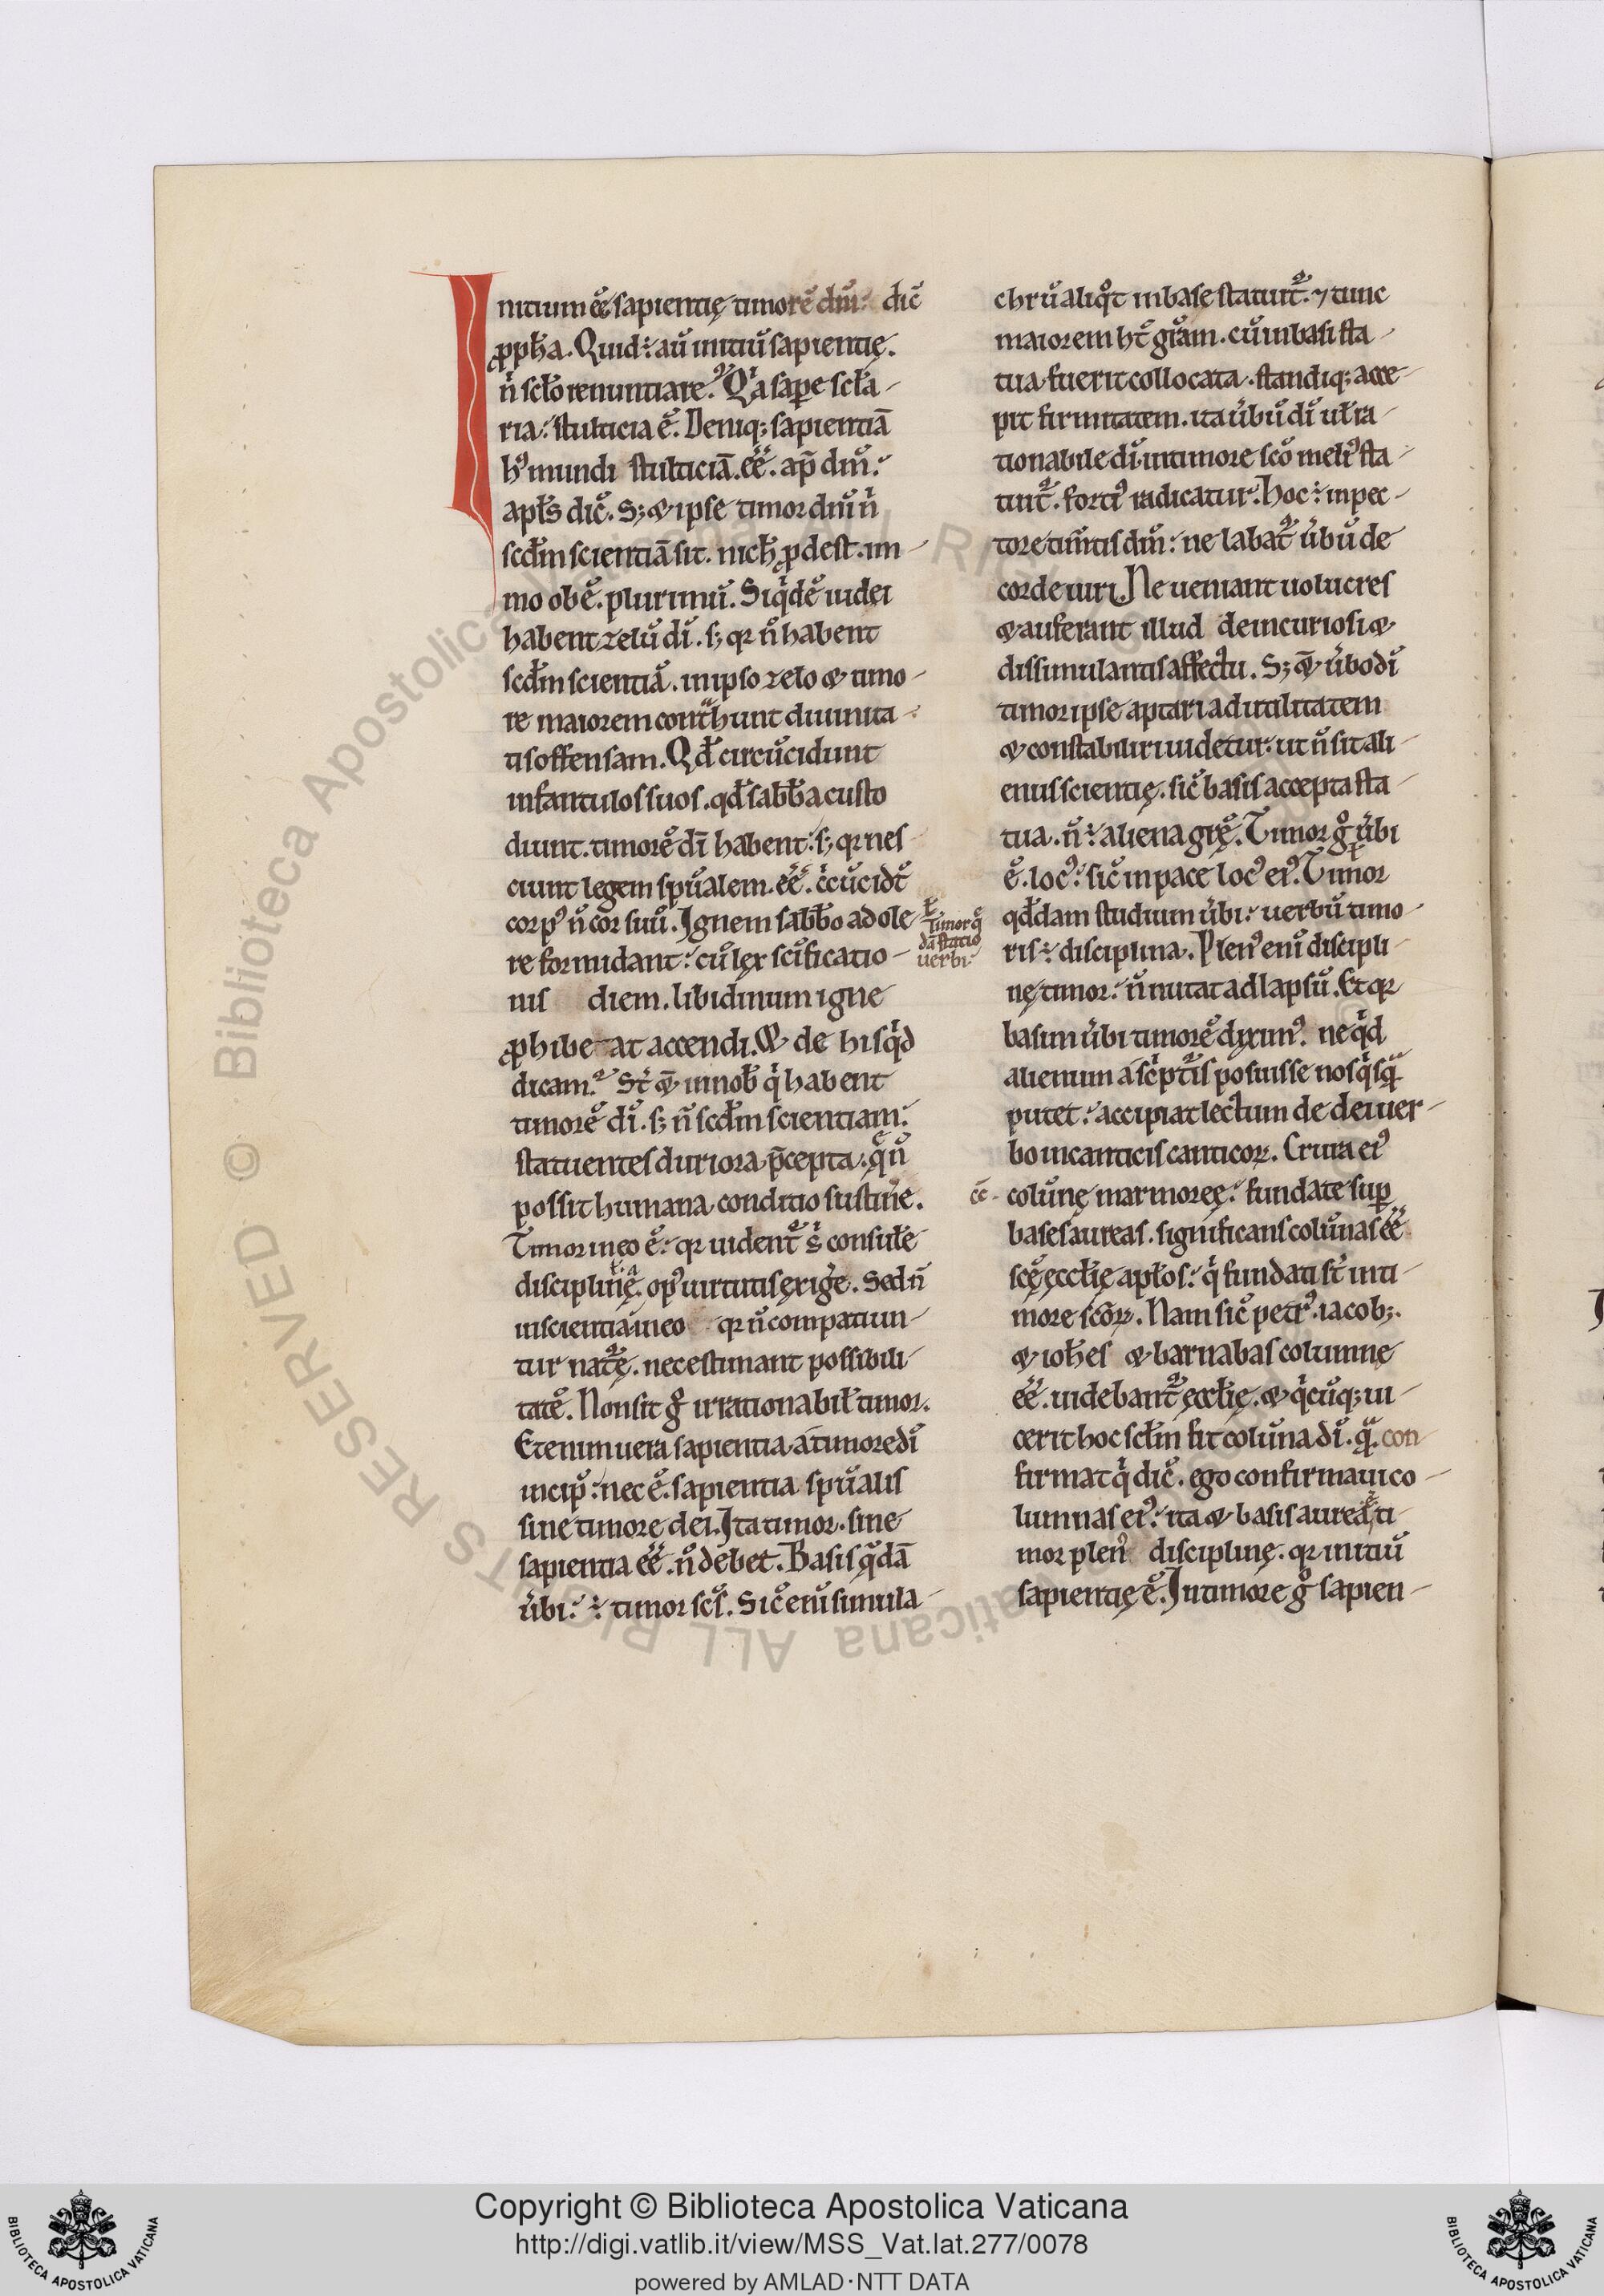 Initium eē. sapientię timorē dn̄i. dic̄
ꝓph̄a. Quid ÷ au̅ initiū sapientię.
n̄ scl̄o renuntiare? Qͥa sapͤe scl̄a-
ria. stulticia ē. Deniq; sapientiā
hꝰ mundi stulticiā. eē. ap̄ dn̄i.
apl̄s dic̄. S; & ipse timor dn̄i nͥ
scd̄m scientiā sit. nich̄ ꝓdest. im-
mo obē. plurimū. Siqͥdē iudei
habent zelū di̅. s; qꝛ n̄ habent
scd̄m scientiā. in ipso zelo & timo-
re maiorem contͣhunt diuinita-
tis offensam. Qd̄ circūcidunt
infantulos suos. qd̄ sabb̄a custo
diunt. timorē di̅ habent. s; qꝛ nes-
ciunt legem sp̄ualem. eē. cͥcūcidt̄
corpꝰ n̄ cor suū. Ignem sabb̄o adole-
re formidant. cū lex sc̄ificatio-
nis diem. libidinum igne
ꝓhibeat accendi. & de his qͥd
dicam? St̄ & in nob̄ qͥ habent
timorē di̅. s; n̄ scd̄m scientiam.
statuentes duriora p̄cepta. q̄ n̄
possit humana conditio sustinͤe.
Timor in eo ē. qꝛ uident̄ sͥ consul̄e
disciplinę. opꝰ uirtutis exigͤe. Sed n̄
inscientia in eo qꝛ n̄ compatiun-
tur nat̄ę. nec estimant possibili-
tatē. Non sit gͦ irrationabil̄ timor.
Etenim uera sapientia. a timore di̅
incip̄. nec ē. sapientia sp̄ualis
sine timore dei. Ita timor. sine
sapientia eē. n̄ debet. Basis qͣdā
u̅bi. ÷ timor scs̄. Sic̄ enī simula-
ł
timor qͣ
dā statio
uerbi.
chrū aliqͦt in base statuit̄. ⁊ tunc
maiorem ht̄ gr̄am. cū in basi sta-
tua fuerit collocata. standiq; acce-
pit firmitatem. ita u̅bū di̅ ul̄ ra-
tionabile di̅. in timore sc̄o meliꝰ sta-
tuit̄. fortiꝰ radicatur. hoc ÷ in pec-
tore tim̄tis dn̄i. ne labat̄ u̅bū de
corde iuri. Ne ueniant uolucres
& auferant illud de incuriosi &
dissimulantis affectu. S; & u̅bo di̅
timor ipse aptari ad utilitatem
& constabiliri uidetur. ut n̄ sit ali-
enus scientię. sic̄ basis accepta sta-
tua. n̄ ÷ aliena gr̄ę. Timor gͦ u̅bi
ē. locꝰ. sic̄ in pace locꝰ eiꝰ. Timor
qd̄dam studium u̅bi. uerbū timo-
ris ÷ disciplina. Plenꝰ enī discipli-
nę timor. n̄ nutat ad lapsū. Et qꝛ
basim u̅bi timorē diximꝰ. ne qͥd
alienum a scͥpt̄is posuisse nos qͥsqͣ
putet. accipiat lectum de dei uer-
bo in canticis canticoꝝ. Crura eiꝰ
cc̄. colūnę marmoreę. fundate sup̱
bases aureas. significans colūnas eē
scę̄ eccl̄ię apl̄os. qͥ fundati st̄ in ti-
more sc̄oꝝ. Nam sic̄ petrꝰ. iacob;.
& ioh̄es & barnabas columnę
eē. uidebant̄ eccl̄ię. & qͥcūq; ui-
cerit hoc scl̄m fit colūna di̅. qͣ con
firmat qͥ dic̄. ego confirmaui co-
lumnas eiꝰ. ita & basis aurea, ti-
mor plenꝰ disciplinę. qꝛ initiū
sapientię ē. In timore gͦ sapien-
Copyright © Biblioteca Apostolica Vaticana
http://digi.vatlib.it/view/MSS_Vat.lat.277/0078
powered by AMLAD·NTT DATA